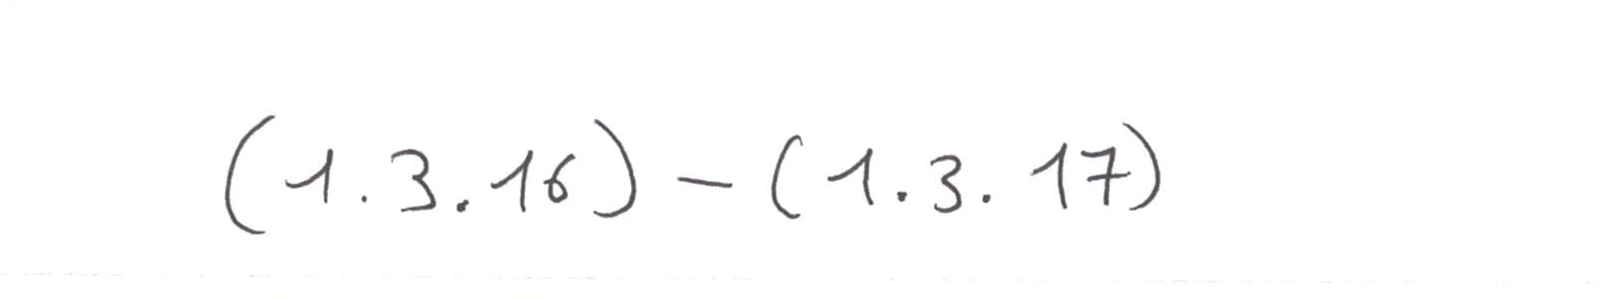 (1.3.16) – (1.3.17)